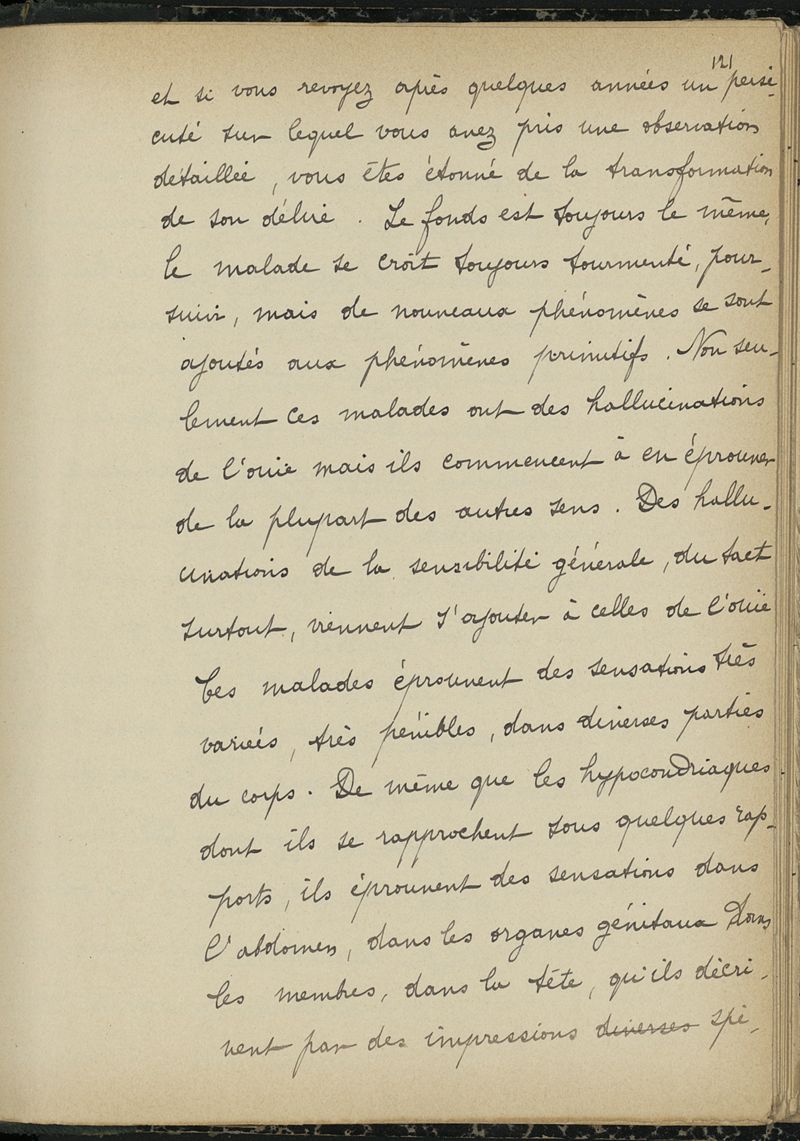 121
et si vous revoyez après quelques années un persé-
cuté sur lequel vous avez pris une observation
détaillée, vous êtes étonné de la transformation
de son délire. Le fonds est toujours le même,
le malade se croit toujours tourmenté, pour-
suivi, mais de nouveaux phénomènes se sont
ajoutés aux phénomènes primitifs. Non seu-
lement ces malades ont des hallucinations
de l'ouïe mais ils commencent à en éprouver
de la plupart des autres sens. Des hallu-
cinations de la sensibilité générale, du tact
surtout, viennent s'ajouter à celles de l'ouïe
Ces malades éprouvent des sensations très
variées, très pénibles, dans diverses parties
du corps. De même que les hypocondriaques
dont ils se rapprochent sous quelques rap-
ports, ils éprouvent des sensations dans
l'abdomen, dans les organes génitaux dans
les membres, dans la tête, qu'ils décri-
vent par des impressions diverses spé-